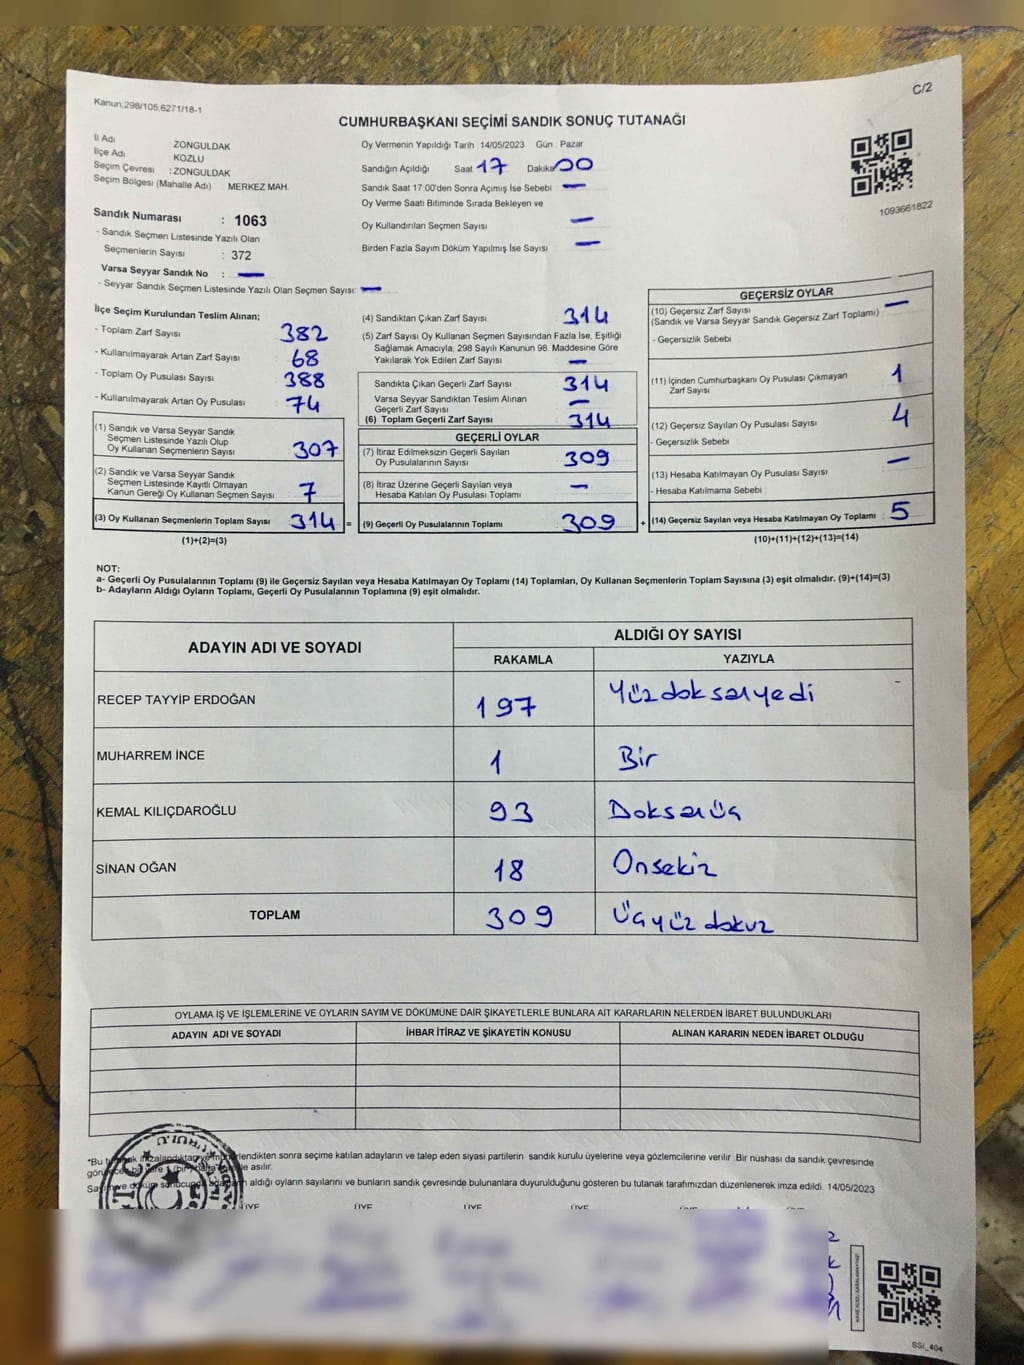 C/2
Kanun,298/105,6271/18-1
CUMHURBAŞKANI SEÇİMİ SANDIK SONUÇ TUTANAĞI
İl Adı ZONGULDAK
İlçe Adı KOZLU
Seçim Çevresi :ZONGULDAK
Seçim Bölgesi (Mahalle Adı) : MERKEZ MAH.
Sandık Numarası : 1063
- Sandık Seçmen Listesinde Yazılı Olan
Seçmenlerin Sayısı : 372
Varsa Seyyar Sandık No : —
- Seyyar Sandık Seçmen Listesinde Yazılı Olan Seçmen Sayısı: —
Oy Vermenin Yapıldığı Tarih 14/05/2023 Gün : Pazar
Sandığın Açıldığı Saat 17 Dakika 00
Sandık Saat 17:00'den Sonra Açımış İse Sebebi —
Oy Verme Saati Bitiminde Sırada Bekleyen ve
Oy Kullandırılan Seçmen Sayısı —
Birden Fazla Sayım Döküm Yapılmış İse Sayısı —
1093661822
İlçe Seçim Kurulundan Teslim Alınan;
- Toplam Zarf Sayısı 382
- Kullanılmayarak Artan Zarf Sayısı 68
- Toplam Oy Pusulası Sayısı 388
- Kullanılmayarak Artan Oy Pusulası 74
(1) Sandık ve Varsa Seyyar Sandık
Seçmen Listesinde Yazılı Olup
Oy Kullanan Seçmenlerin Sayısı 307
(2) Sandık ve Varsa Seyyar Sandık
Seçmen Listesinde Kayıtlı Olmayan
Kanun Gereği Oy Kullanan Seçmen Sayısı 7
(3) Oy Kullanan Seçmenlerin Toplam Sayısı 314 =
(1)+(2)=(3)
(4) Sandıktan Çıkan Zarf Sayısı 314
(5) Zarf Sayısı Oy Kullanan Seçmen Sayısından Fazla İse, Eşitliği
Sağlamak Amacıyla, 298 Sayılı Kanunun 98. Maddesine Göre
Yakılarak Yok Edilen Zarf Sayısı —
Sandıkta Çıkan Geçerli Zarf Sayısı 314
Varsa Seyyar Sandıktan Teslim Alınan
Geçerli Zarf Sayısı —
(6) Toplam Geçerli Zarf Sayısı 314
GEÇERLİ OYLAR
(7) İtiraz Edilmeksizin Geçerli Sayılan
Oy Pusulalarının Sayısı 309
(8) İtiraz Üzerine Geçerli Sayılan veya
Hesaba Katılan Oy Pusulası Toplamı —
(9) Geçerli Oy Pusulalarının Toplamı 309 +
GEÇERSİZ OYLAR
(10) Geçersiz Zarf Sayısı —
(Sandık ve Varsa Seyyar Sandık Geçersiz Zarf Toplamı)
- Geçersizlik Sebebi
(11) İçinden Cumhurbaşkanı Oy Pusulası Çıkmayan
Zarf Sayısı 1
(12) Geçersiz Sayılan Oy Pusulası Sayısı 4
- Geçersizlik Sebebi
(13) Hesaba Katılmayan Oy Pusulası Sayısı —
- Hesaba Katılmama Sebebi
(14) Geçersiz Sayılan veya Hesaba Katılmayan Oy Toplamı 5
(10)+(11)+(12)+(13)=(14)
NOT:
a- Geçerli Oy Pusulalarının Toplamı (9) ile Geçersiz Sayılan veya Hesaba Katılmayan Oy Toplamı (14) Toplamları, Oy Kullanan Seçmenlerin Toplam Sayısına (3) eşit olmalıdır. (9)+(14)=(3)
b- Adayların Aldığı Oyların Toplamı, Geçerli Oy Pusulalarının Toplamına (9) eşit olmalıdır.
ADAYIN ADI VE SOYADI ALDIĞI OY SAYISI
RAKAMLA YAZIYLA
RECEP TAYYİP ERDOĞAN 197 Yüzdoksanyedi
MUHARREM İNCE 1 Bir
KEMAL KILIÇDAROĞLU 93 Doksanüç
SİNAN OĞAN 18 Onsekiz
TOPLAM 309 Üçyüzdokuz
OYLAMA İŞ VE İŞLEMLERİNE VE OYLARIN SAYIM VE DÖKÜMÜNE DAİR ŞİKAYETLERLE BUNLARA AİT KARARLARIN NELERDEN İBARET BULUNDUKLARI
ADAYIN ADI VE SOYADI İHBAR İTİRAZ VE ŞİKAYETİN KONUSU ALINAN KARARIN NEDEN İBARET OLDUĞU
*Bu lendikten sonra seçime katılan adayların ve talep eden siyasi partilerin sandık kurulu üyelerine veya gözlemcilerine verilir .Bir nüshası da sandık çevresinde
asılır.
aldığı oyların sayılarını ve bunların sandık çevresinde bulunanlara duyurulduğunu gösteren bu tutanak tarafımızdan düzenlenerek imza edildi. 14/05/2023
ÜYE ÜYE ÜYE ÜYE ÜYE
SSİ_404